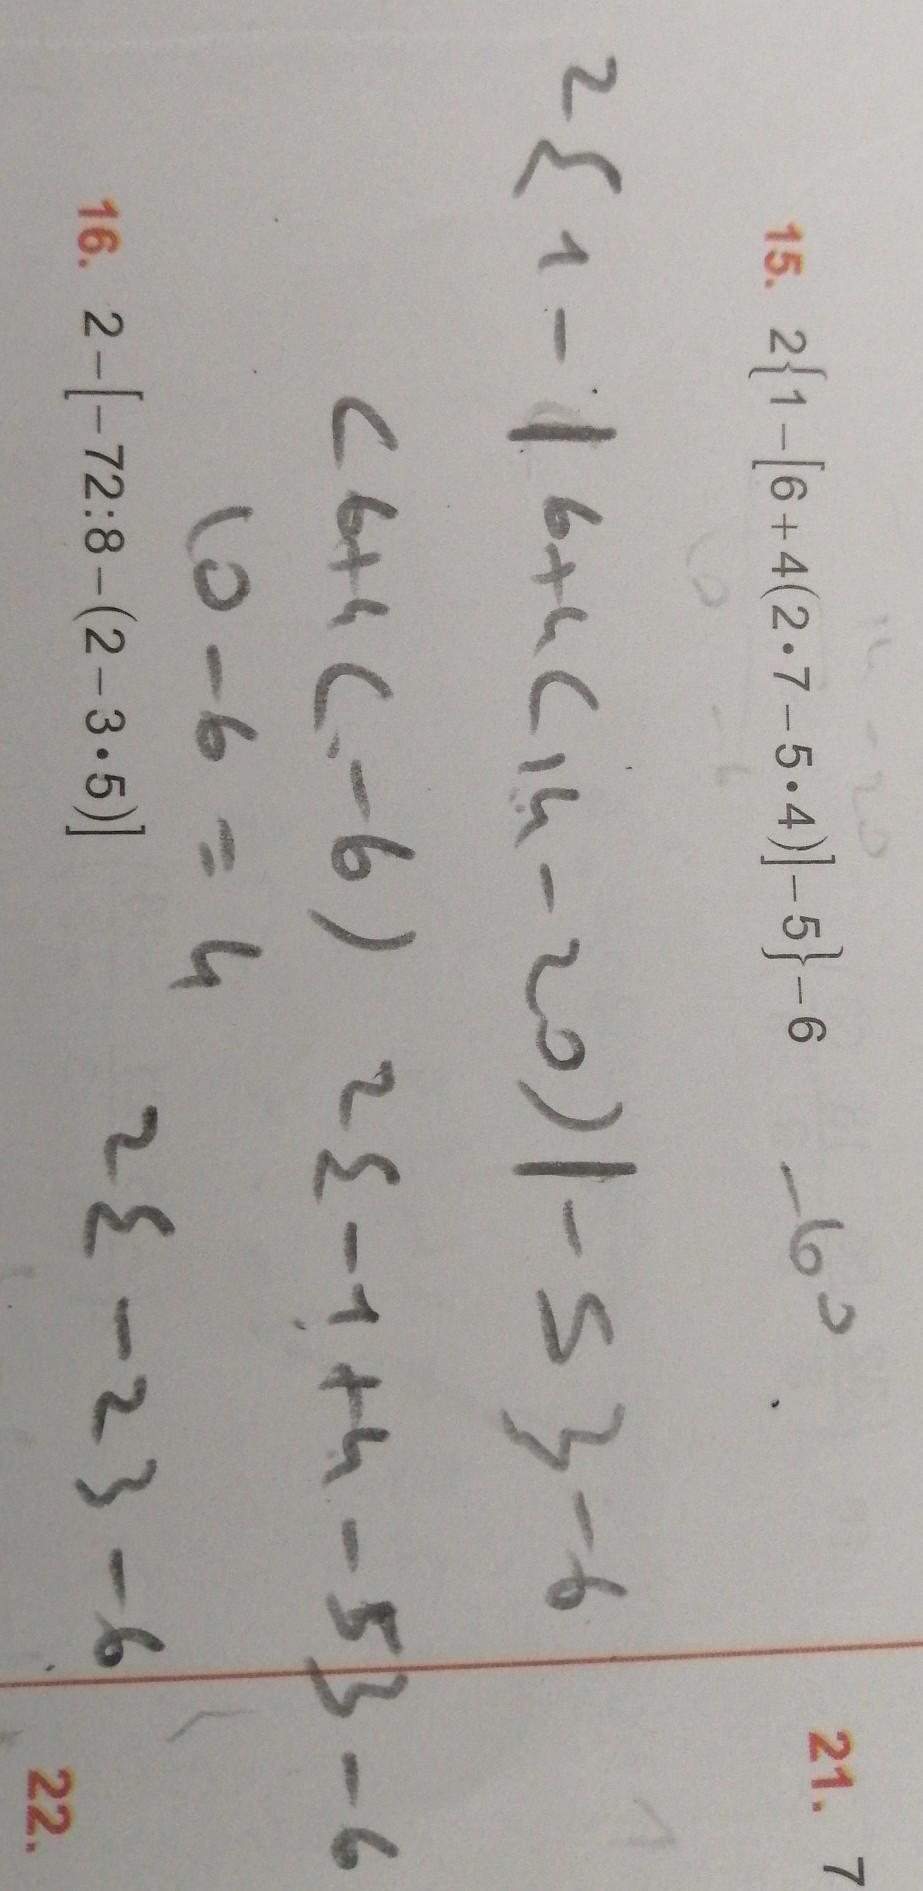 15. 2{1-[6+4(2•7-5•4)]-5}-6
21. 7
2{1-|6+4(14-20)|-5}-6
(6+4(-6) 2{-1+4-5}-6
10-6=4
2{-2}-6
16. 2-[-72:8-(2-3•5)]
22.